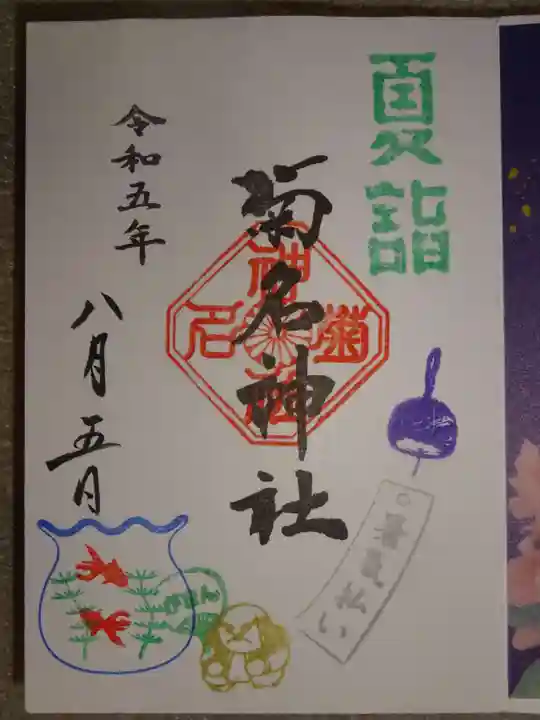 夏詣
菊名神社
菊名神社
令和五年
八月五日
暑気払い